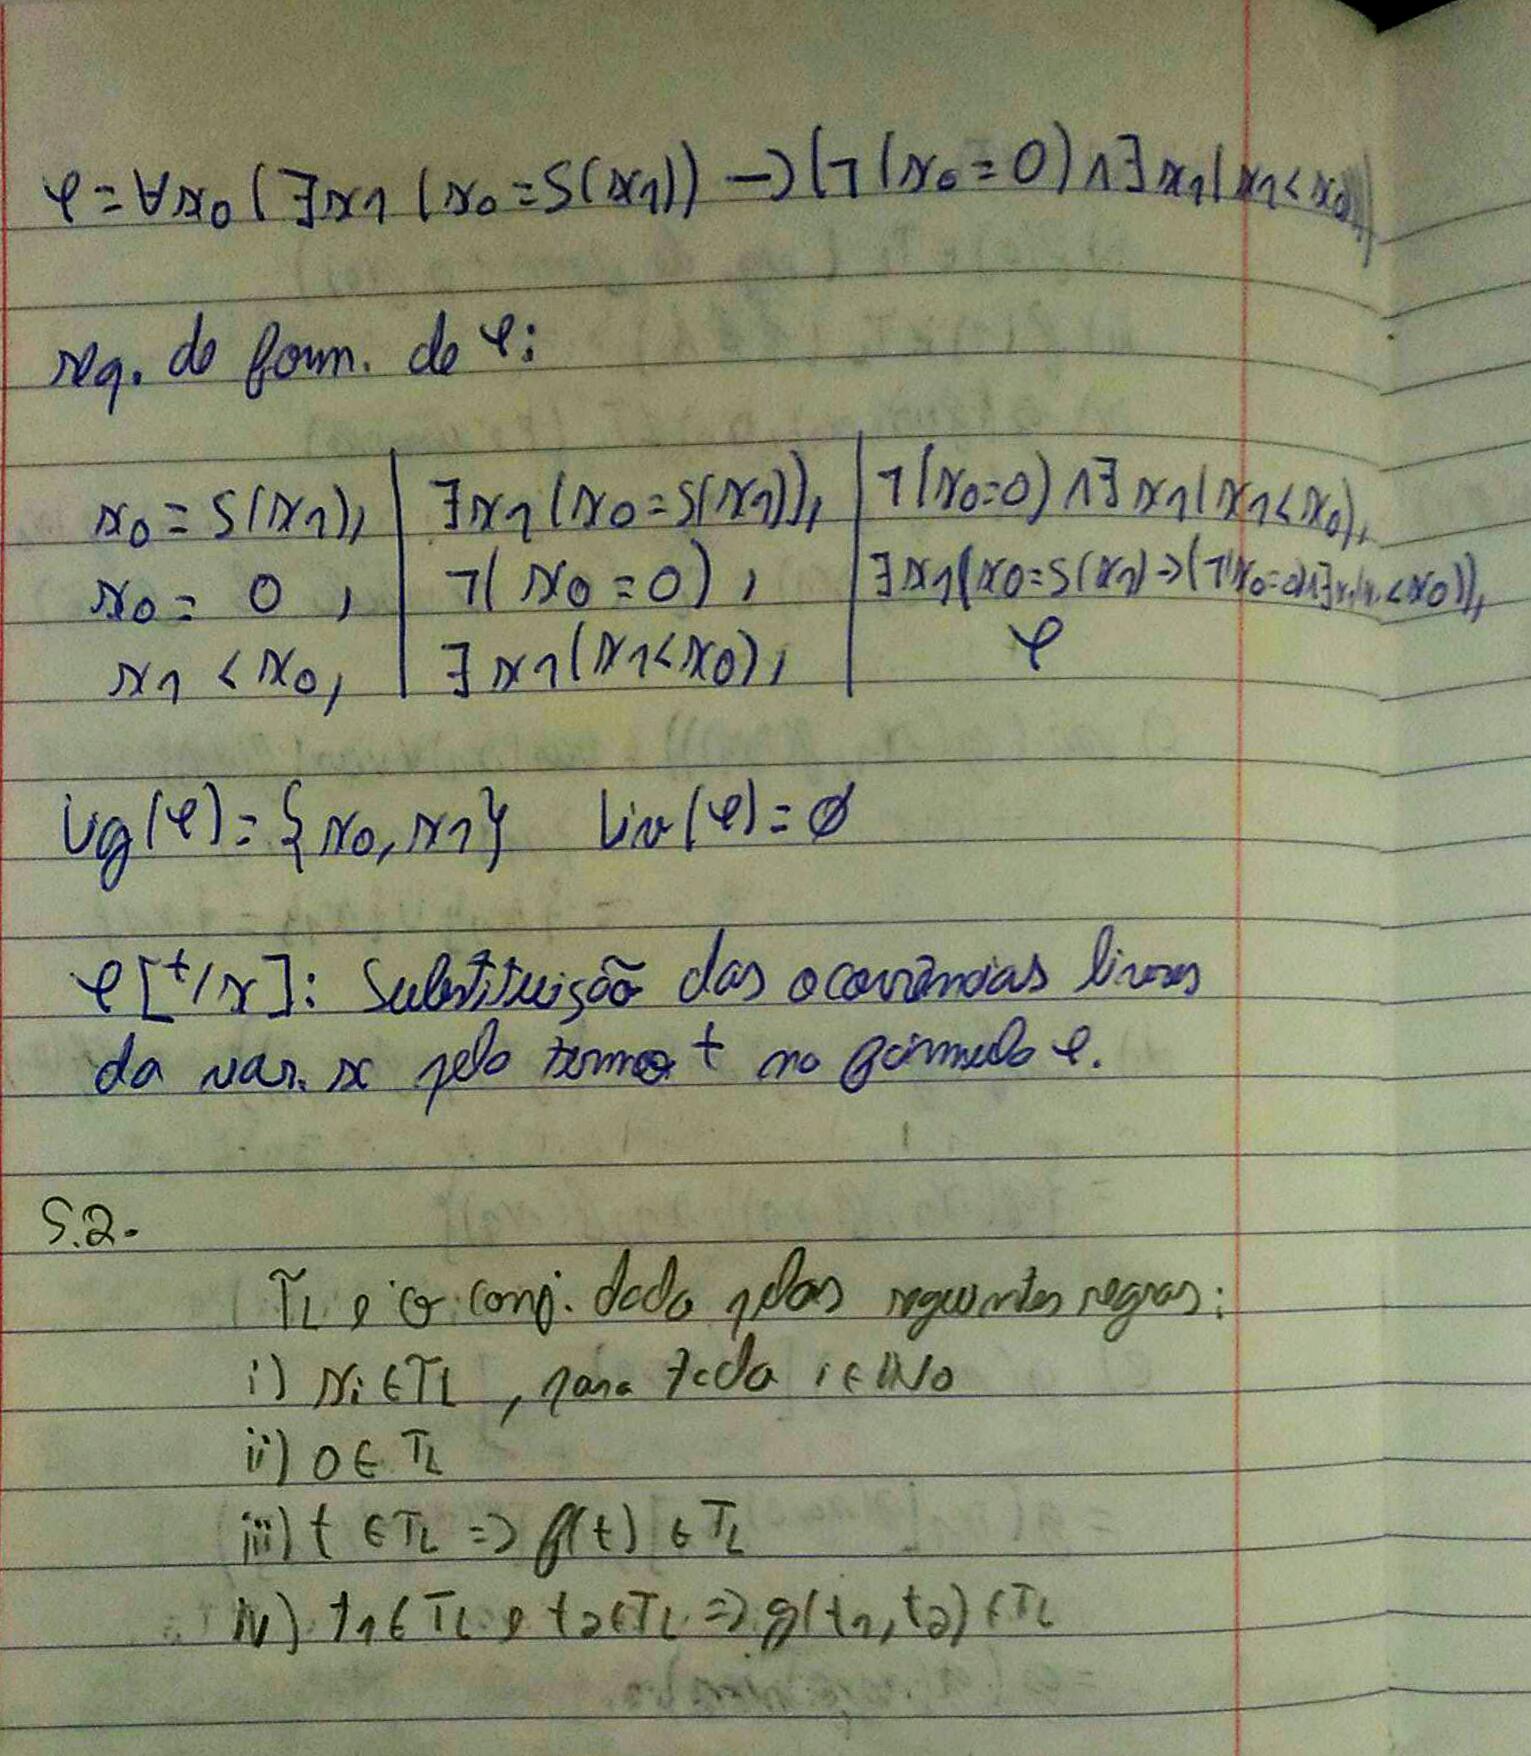 φ=∀x0(∃x1(x0=S(x1))→(¬(x0=0)∧∃x1(x1<x0)
seq. de form. de φ:
x0=S(x1), | ∃x1(x0=S(x1)), | ¬(x0=0)∧∃x1(x1<x0),
x0=0, | ¬(x0=0), | ∃x1(x0=S(x1)→(¬(x0=0)∧∃x1(x1<x0)),
x1<x0, | ∃x1(x1<x0), | φ
Lig(φ)={x0,x1} Liv(φ)=∅
φ[t/x]: Substituição das ocorrências livres
da var. x pelo termo t na fórmula φ.
5.2.
TL é o conj. dado pelas seguintes regras:
i) xi∈TL, para todo i∈IN0
ii) 0∈TL
iii) t∈TL=>f(t)∈TL
iv) t1∈TL e t2∈TL=>g(t1,t2)∈TL